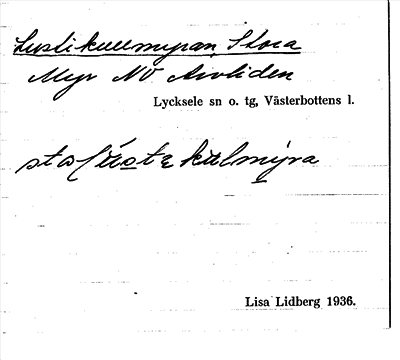 Lustikullmyran, Stora
Myr NV Arvliden
Lycksele sn o. tg, Västerbottens l.
Lisa Lidberg 1936.